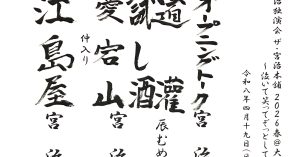 治独演会 ザ・宮治本舗 2026春@大
～泣いて笑ってぞっとして
令和八年四月十九日(日
オープニングトーク 宮
道灌 辰むめ
試し酒 宮
愛宕山 宮
仲入り
江島屋 宮